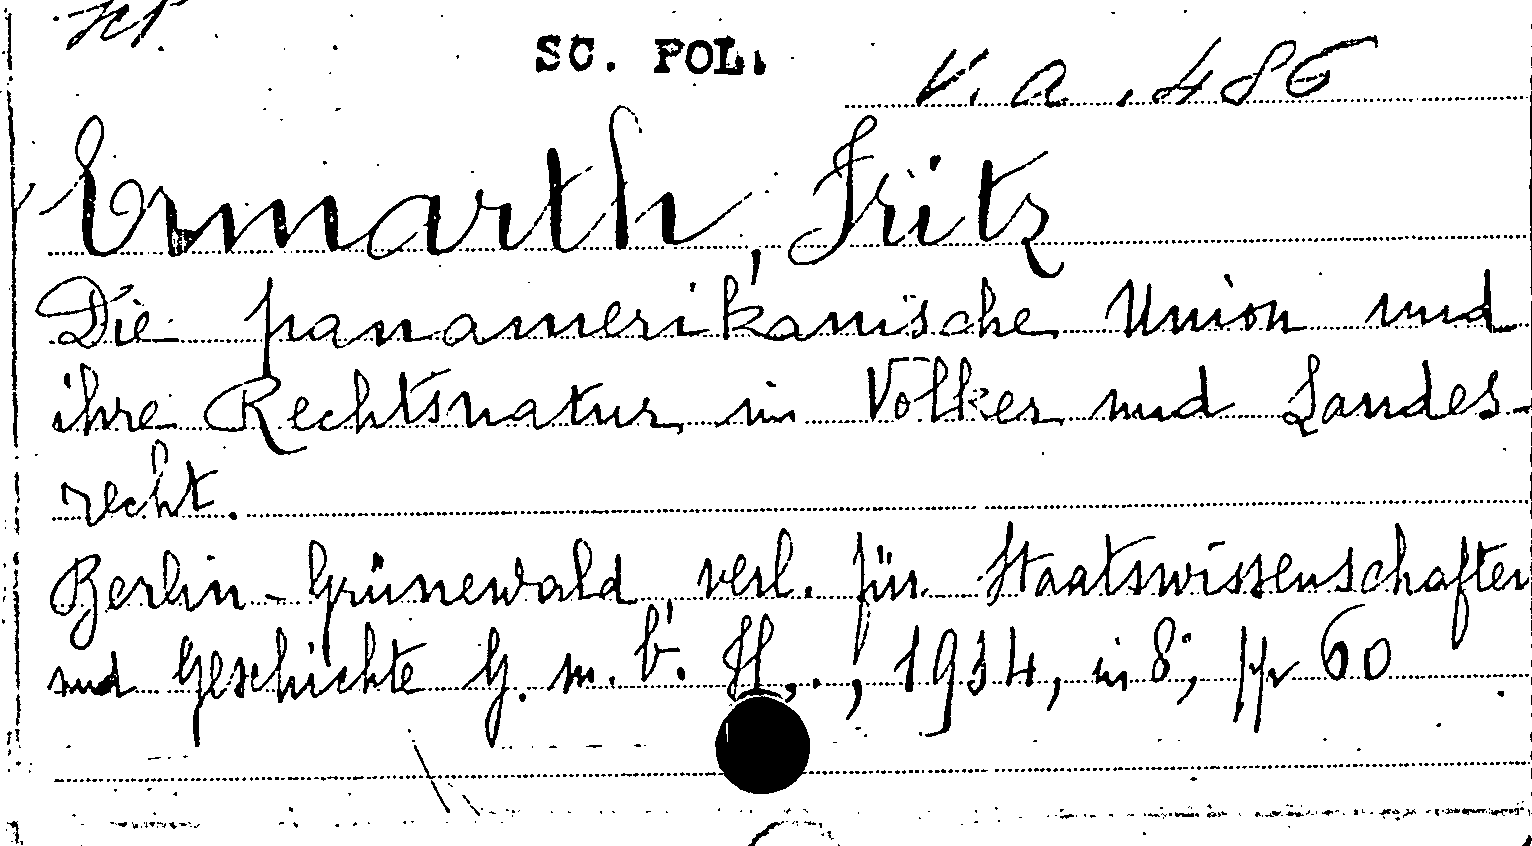 SC. POL.
V. a. 486
Ermarth, Fritz
Die panamerikanische Union und
ihre Rechtsnatur im Völker und Landes-
recht.
Berlin-Grünewald, verl. für Staatswissenschaften
und Geschichte G. m. b. H., 1934, in 8°, pp 60